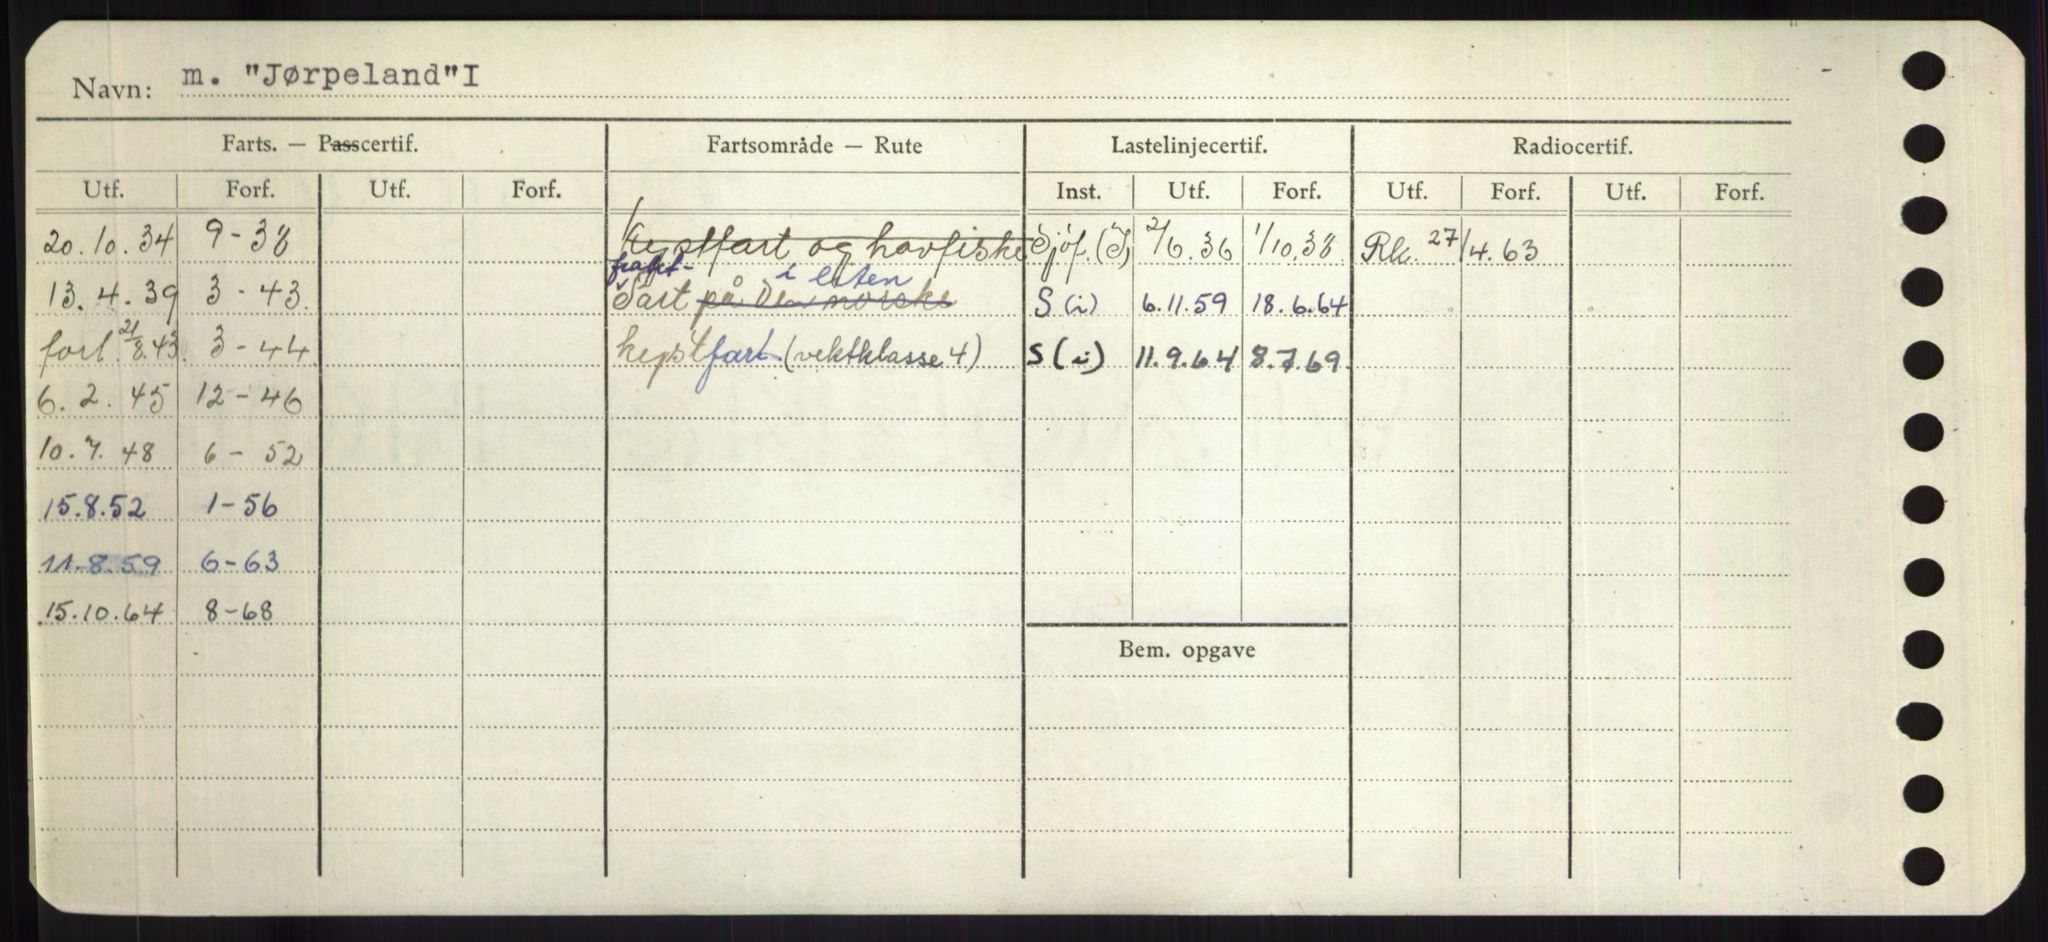 Navn: m. "Jørpeland"I
Farts. — Passcertif. Fartsområde — Rute Lastelinjecertif. Radiocertif.
Utf. Forf. Utf. Forf. Inst. Utf. Forf. Utf. Forf. Utf. Forf.
20.10.34 9-38 Kystfart og havfiske Sjöf.(I) 2/6.36 1/10.38 Rk. 27/4.63
frakt- i liten
13.4.39 3-43. Fart på den norske S(i) 6.11.59 18.6.64
forl. 21/8.43. 3-44 kystfart (vektklasse 4) S(i) 11.9.64 8.7.69.
6.2.45 12-46
10.7.48 6-52
15.8.52 1-56
11.8.59 6-63
15.10.64 8-68
Bem. opgave